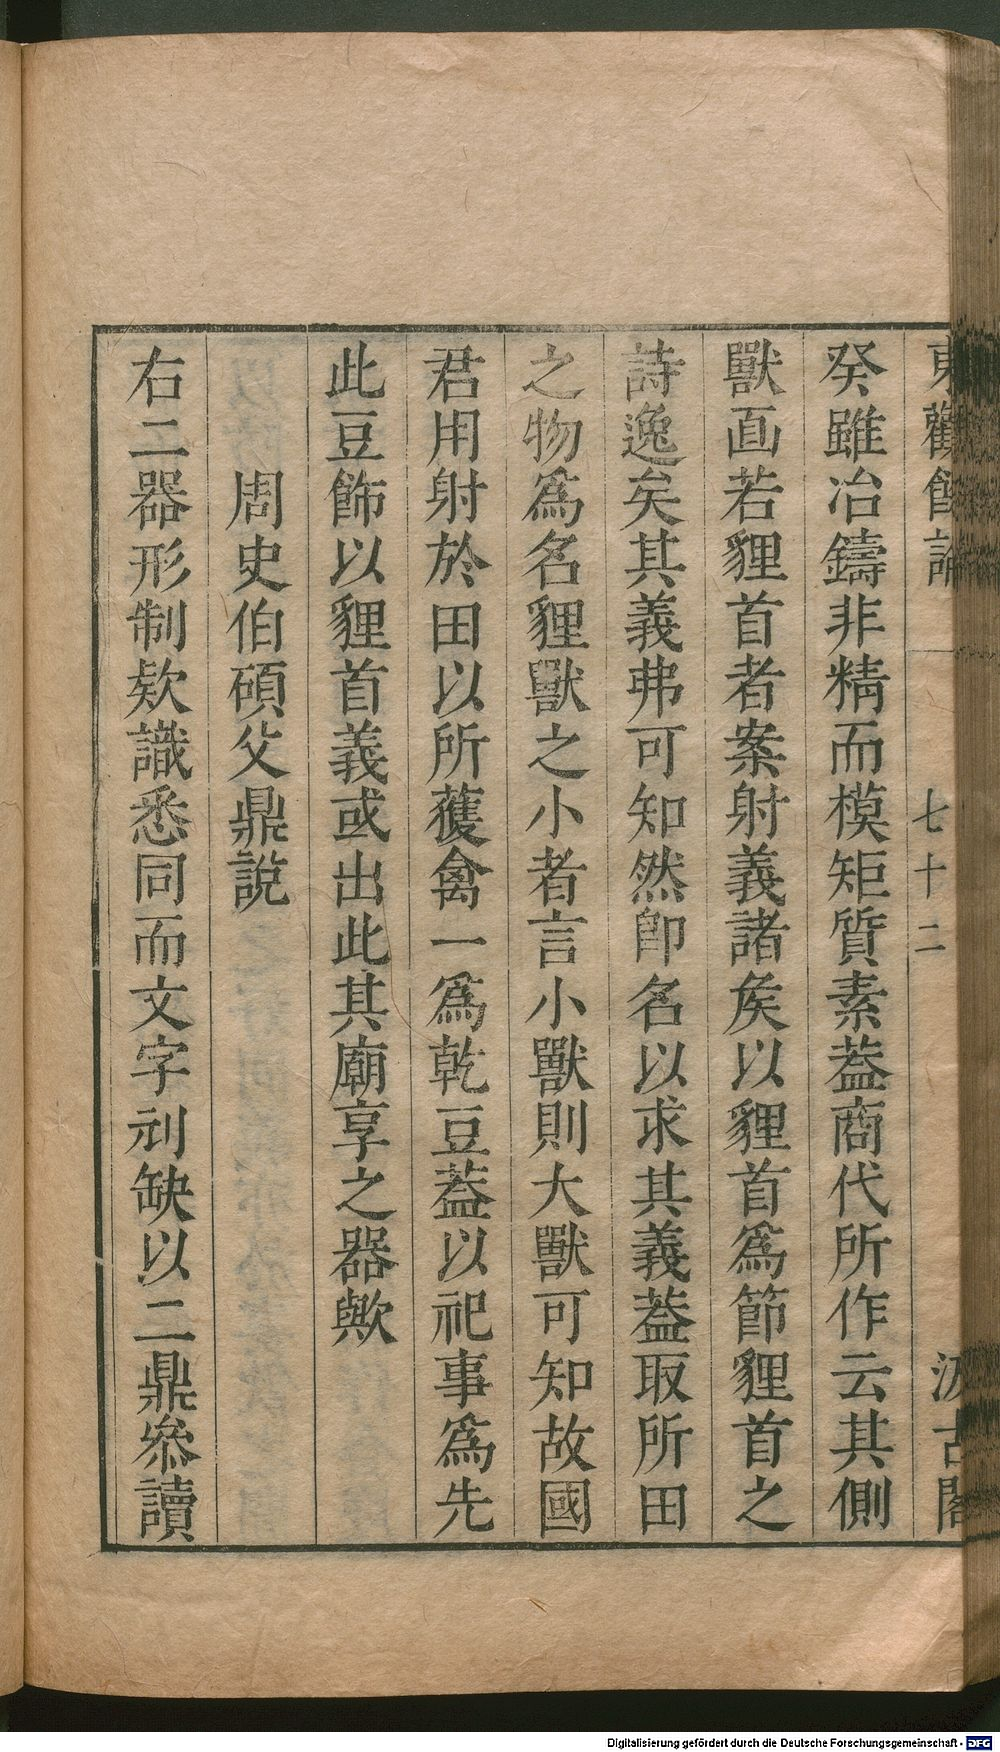 東觀餘論
七十二
汲古閣
癸雖冶鑄非精而模矩質素蓋商代所作云其側
獸面若貍首者案射義諸矦以貍首爲節貍首之
詩逸矣其義弗可知然卽名以求其義蓋取所田
之物爲名貍獸之小者言小獸則大獸可知故國
君用射於田以所蒦禽一爲乾豆蓋以祀事爲先
此豆飾以貍首義或出此其廟享之器歟
周史伯碩父鼎說
右二器形制欵識悉同而文字刓缺以二鼎叅讀
Digitalisierung gefördert durch die Deutsche Forschungsgemeinschaft - DFG